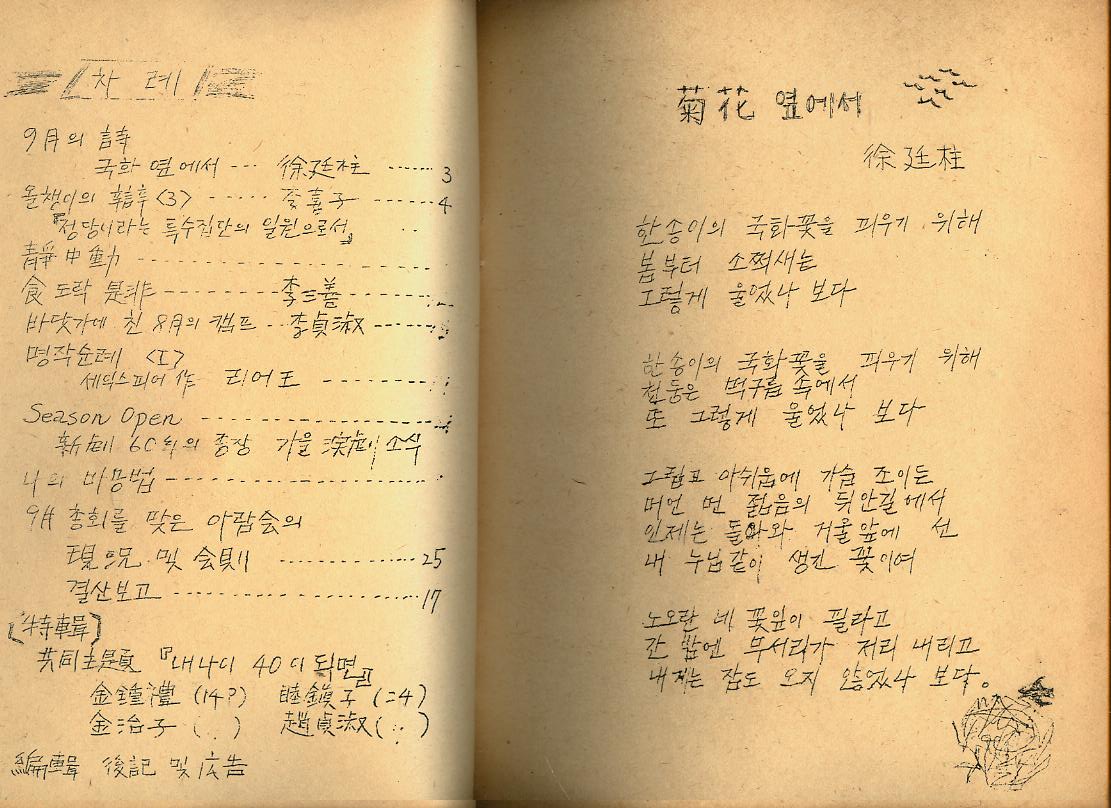 차 례
9月의 詩
국화 옆에서 --- 徐廷柱 ------ 3
올챙이의 <3> ------ 李喜子 ------ 4
『정당이라는 특수집단의 일원으로서』
靜中動 ------
食도락 是非 ------ 李三善 ------
바닷가에 친 8月의 캠프 -- 李貞淑 ------
명작순례 <I>
세익스피어 作 리어王 ------
Season Open ------
新劇 60年의 종장 가을 演劇 소식
나의 비망법 ------
9月 총회를 맞은 아람会의
現況 및 会則 ------ 25
결산보고 ------ 17
[特輯]
共同主題 『내나이 40이 되면』
金鍾澧 (14?) 睦鎭子 (24)
金治子 ( ) 趙貞淑 ( )
編輯 後記 및 広告
菊花 옆에서
徐廷柱
한송이의 국화꽃을 피우기 위해
봄부터 소쩍새는
그렇게 울었나 보다
한송이의 국화꽃을 피우기 위해
천둥은 먹구름 속에서
또 그렇게 울었나 보다
그립고 아쉬움에 가슴 조이든
머언 먼 젊음의 뒤안길에서
인제는 돌아와 거울앞에 선
내 누님같이 생긴 꽃이여
노오란 네 꽃잎이 필라고
간 밤엔 무서리가 저리 내리고
내게는 잠도 오지 않었나 보다。